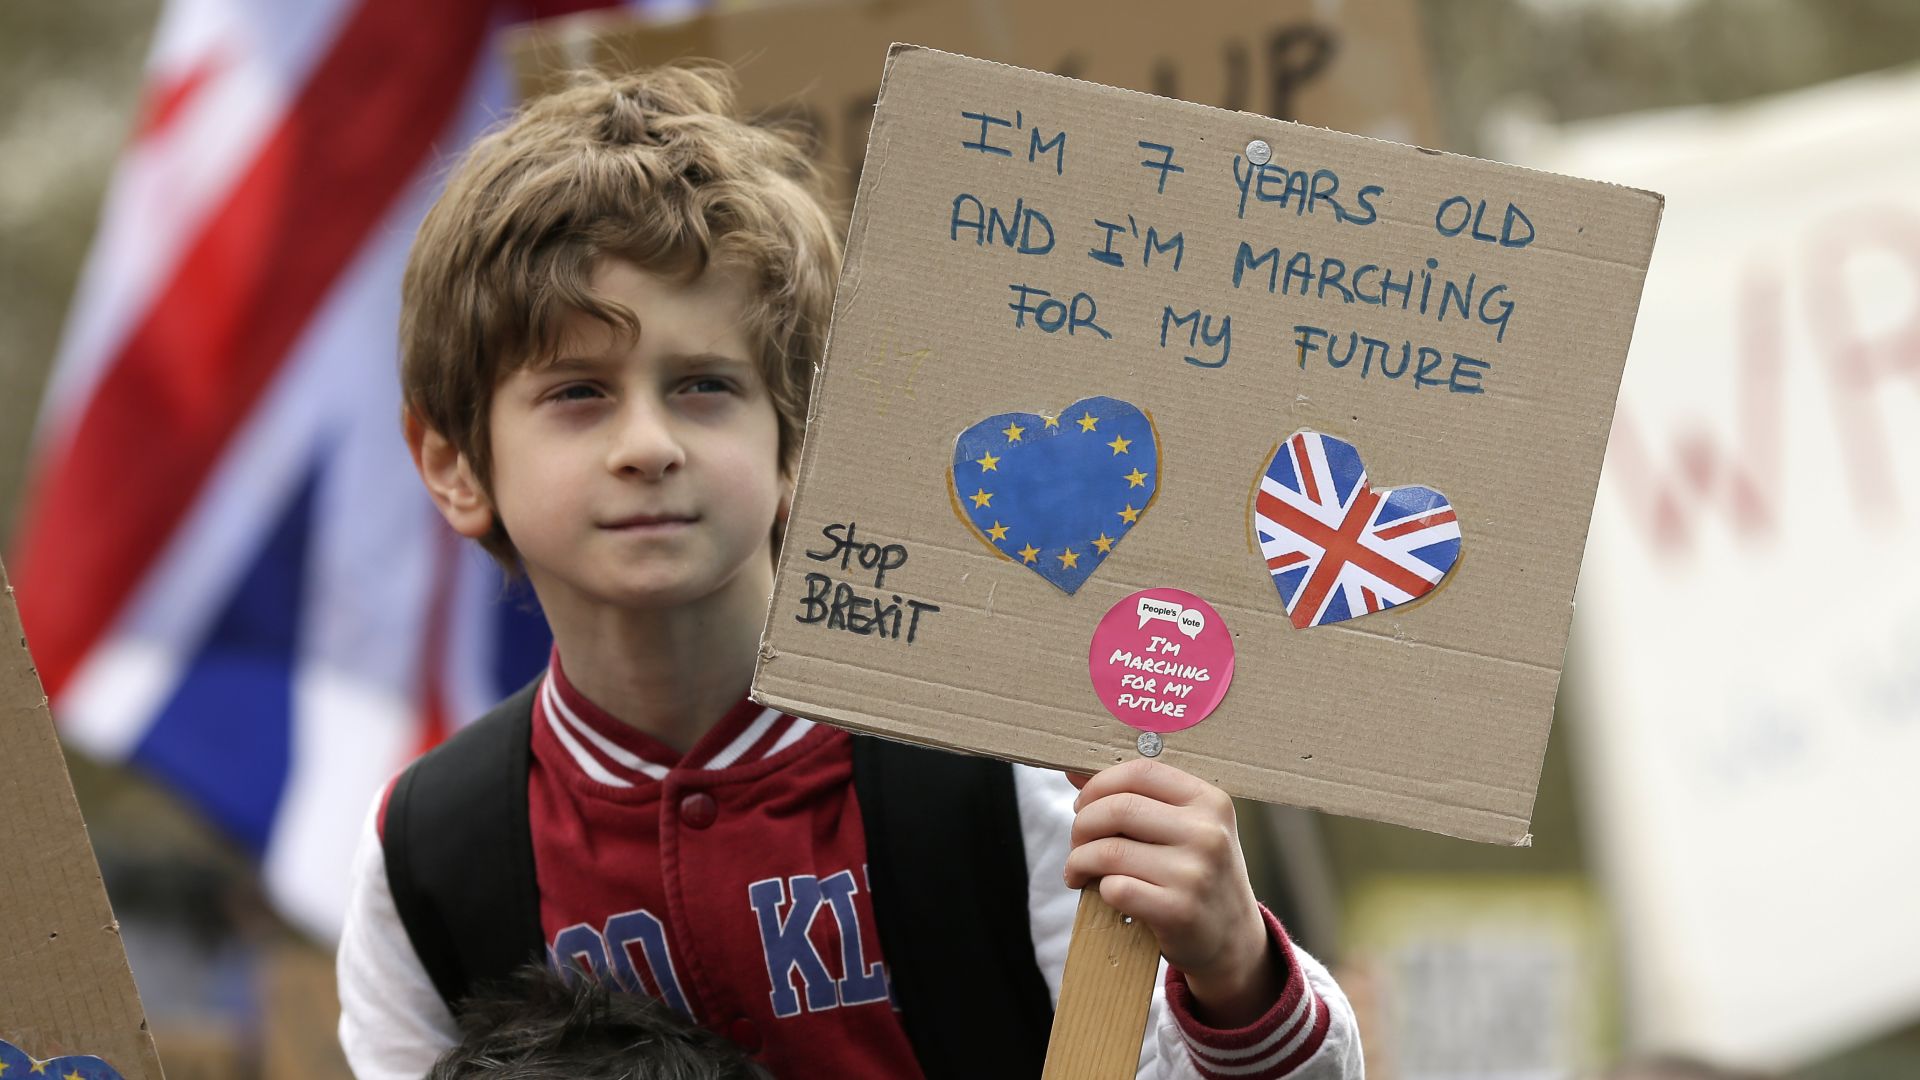 UP
I'M 7 YEARS OLD
AND I'M MARCHiNG
FOR MY FUTURE
Stop
BREXiT
People's
Vote
I'M
MARCHING
FOR MY
FUTURE
KL